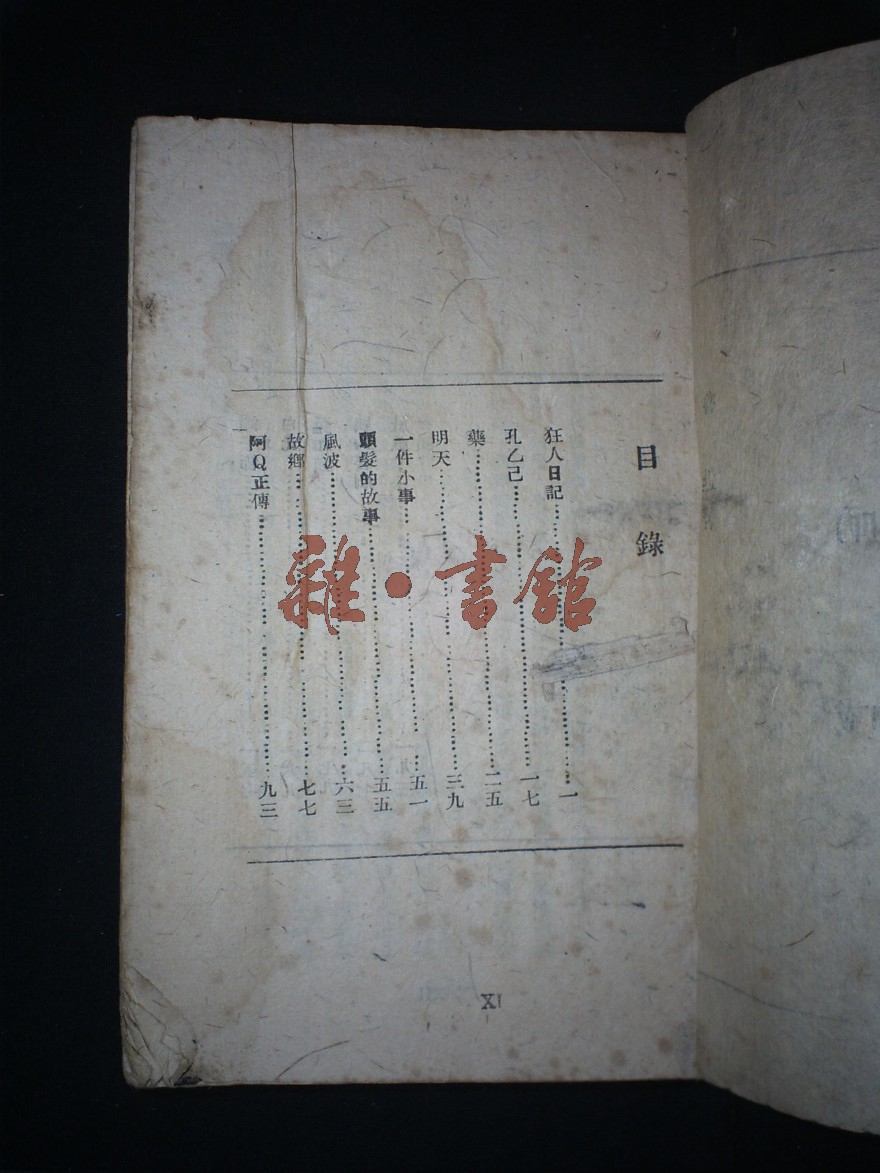 目錄
狂人日記……一
孔乙己……一七
藥……二五
明天……三九
一件小事……五一
頭髮的故事……五五
風波……六三
故鄉……七七
阿Q正傳……九三
XI
雜·書館